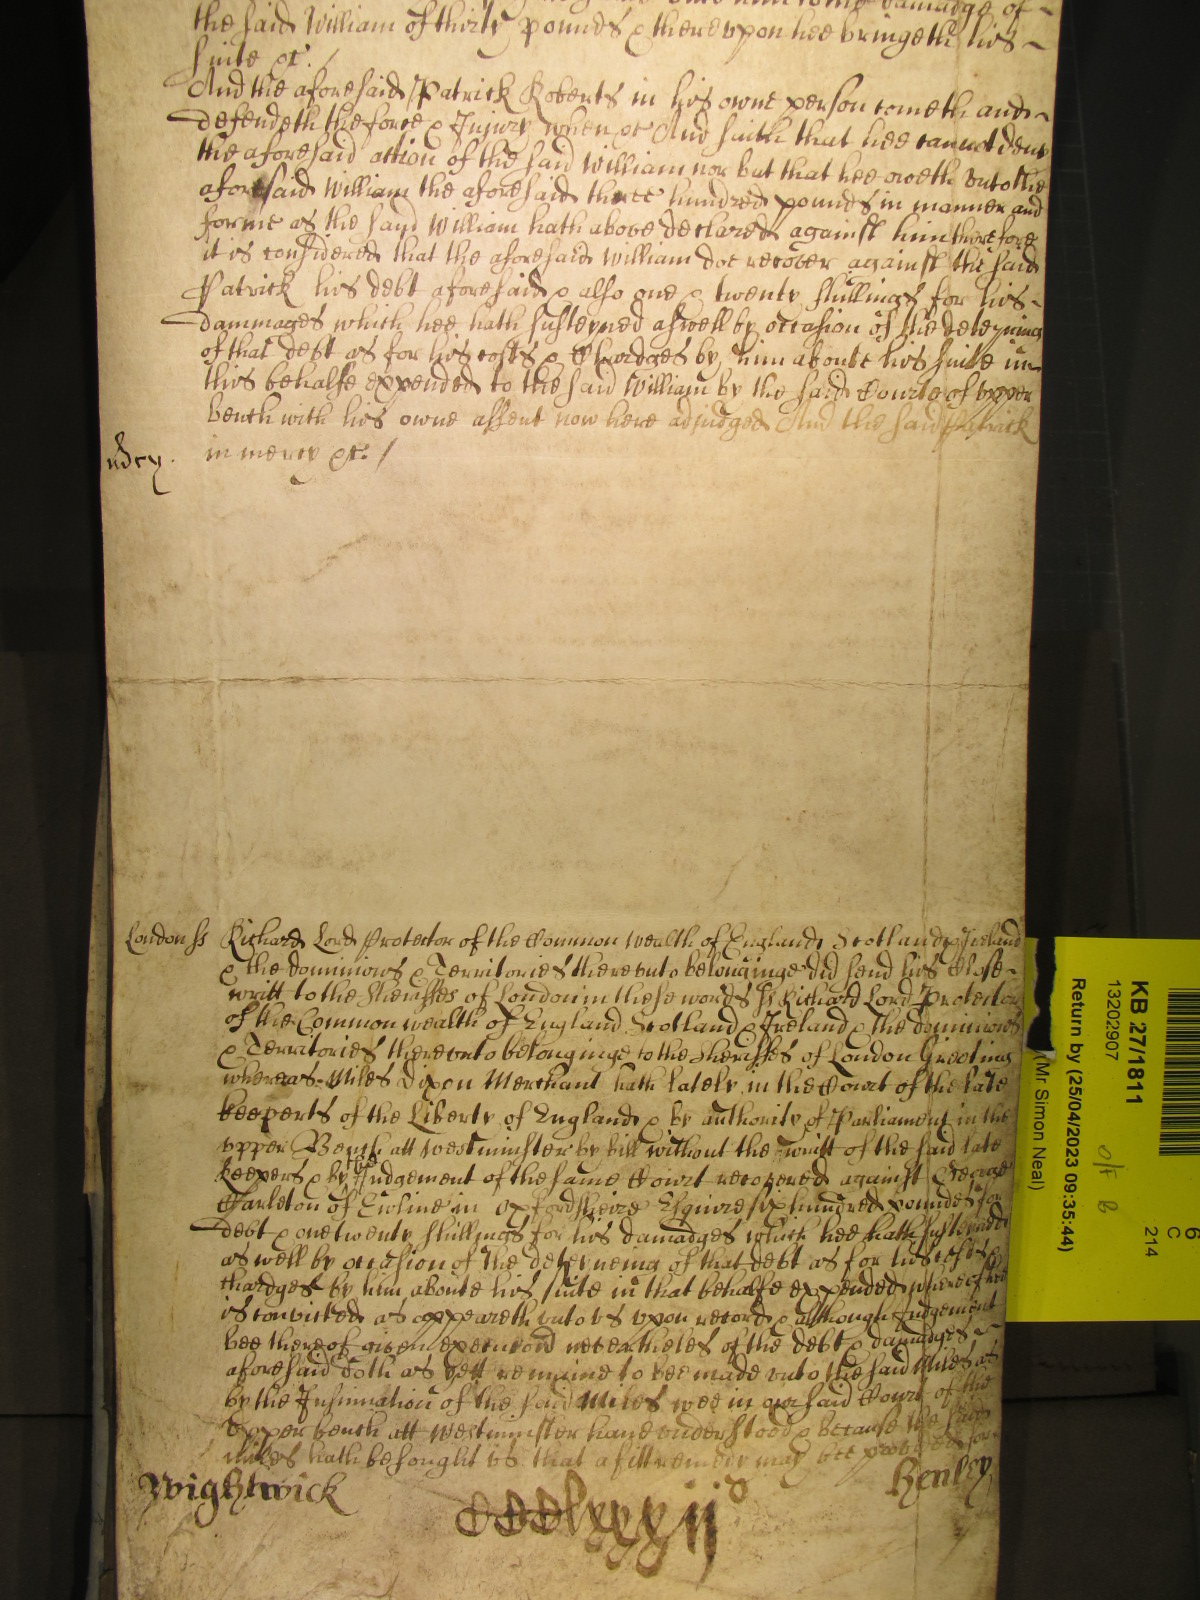 damadge of
the said William of thirty pounds & thereupon hee bringeth his
suite &c. /
And the aforesaid Patrick Roberts in his owne person cometh and
defendeth the force & Injury when &c And saith that hee cannot deny
the aforesaid action of the said William nor but that hee oweth unto the
aforesaid William the aforesaid three hundred pounds in manner and
forme as the sayd William hath above declared against him therefore
it is considered that the aforesaid William doe recover against the said
Patrick his debt aforesaid & also one & twenty shillings for his
dammages which hee hath susteyned aswell by occasion of the deteyning
of that debt as for his costs & Chardges by him aboute his suite in
this behalfe expended to the said William by the said Courte of upper
bench with his owne assent now here adjudged And the said Patrick
in mercy &c. /
London ss Richard Lord Protector of the Common wealth of England Scotland & Ireland
& the dominions & Territories thereunto belonginge did send his Close
writt to the Sheriffes of London in these words ss Richard Lord Protector
of the Common wealth of England Scotland & Ireland & the dominions
& Territories thereunto belonginge to the Sheriffes of London Greeting
whereas Miles Dixon Merchant hath lately in the Court of the late
keepers of the Liberty of England & by authority of Parliament in the
upper Bench att Westminster by bill without the writt of the said late
keepers & by the Judgement of the same Court recovered against George
Carleton of in Oxfordsheire Esquire six hundred pounds for
debt & one twenty shillings for his damadges which hee hath susteyned
as well by occasion of the deteyneing of that debt as for his costs &
chardges by him aboute his suite in that behalfe expended whereof hee
is convicted as appeareth unto us upon record & although Judgement
bee thereof given execucion nevertheles of the debt & damadges
aforesaid doth as yett remaine to bee made unto the said Miles as
by the Insinuation of the said Miles wee in our said Court of the
Upper bench att Westminster have understood & because the said
Miles hath besought us that a fitt remedy may bee provided for
Wightwick
Henley
KB 27/1811
13202907
Return by (25/04/2023 09:35:44)
(Mr Simon Neal)
6
C
214